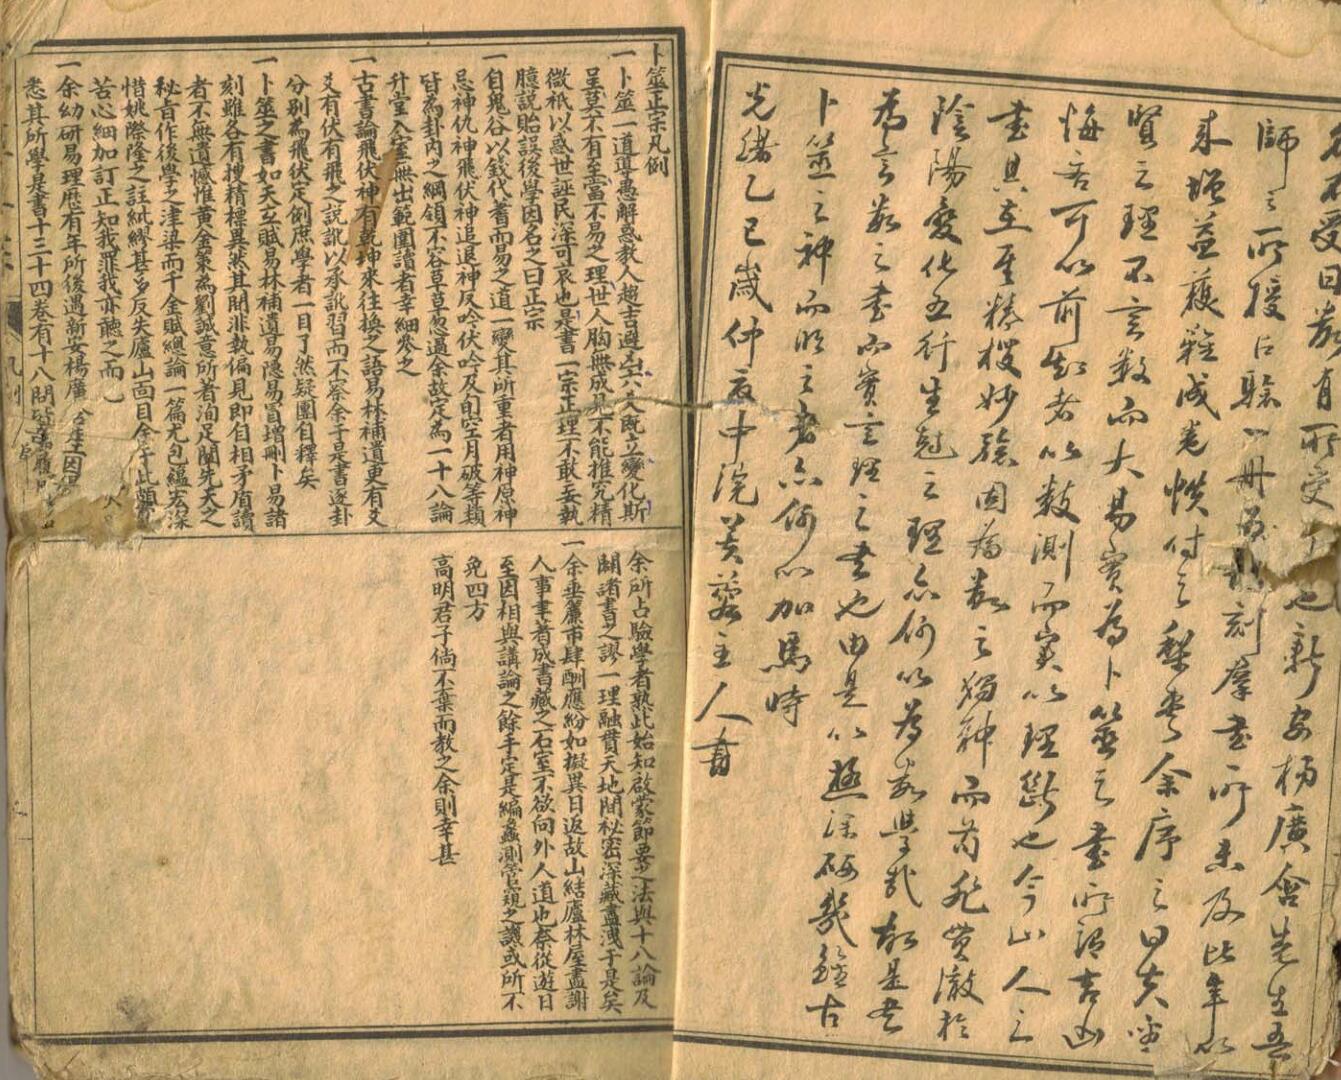 名不受日教有所受
師之所授占驗一冊
來增益後雜成卷帙付之梨棗余序之曰夫
賢之理不言數而大易實為卜筮之書所謂吉凶
悔吝可以前知者以數測而實以理斷也今山人之
書具至至精極妙驗固為數之獨神而苟非貫徹於
陰陽變化五行生剋之理亦何以為書
為言數之書而實言理之書也由是以極深研幾鑑古
卜筮之神而明之者亦何以加焉時
光緒乙巳歲仲夏中浣芙蓉主人書
卜筮正宗凡例
一卜筮一道導愚解惑教人趨吉避凶六爻既立變化斯
呈莫不有至當不易之理世人胸無成見不能推究精
微祇以惑世誣民深可哀也是書一宗正理不敢妄執
臆說貽誤後學因名之曰正宗
一自鬼谷以錢代蓍而易之道一變其所重者用神原神
忌神仇神飛伏神進退神反吟伏吟及旬空月破等類
皆為卦內之綱領不容草草忽過余故定為一十八論
升堂入室無出範圍讀者幸細參之
一古書論飛伏神有乾坤來往換之語易林補遺更有爻
爻有伏有飛之說訛以承訛習而不察余于是書逐卦
分別為飛伏定例庶學者一目了然疑團自釋矣
一卜筮之書如天玄賦易林補遺易隱易冒增刪卜易諸
刻雖各有搜精標異然其間非執偏見即自相矛盾讀
者不無遺憾惟黃金策為劉誠意所著洵足闡先天之
秘旨作後學之津梁而千金賦總論一篇尤包蘊宏深
惜姚際隆之註紕繆甚多反失廬山面目余于此頗費
苦心細加訂正知我罪我亦聽之而已
一余幼研易理歷有年所後遇新安楊廣含先生因
悉其所學是書十三十四卷有十八問
余所占驗學者熟此始知啟蒙節要之法與十八論及
闢諸書之謬一理融貫天地間秘密深藏盡洩于是矣
一余垂簾市肆酬應紛如擬異日返故山結廬林屋盡謝
人事聿著成書藏之石室不欲向外人道也奈從遊日
至因相與講論之餘手定是編蠡測管窺之譏或所不
免四方
高明君子倘不棄而教之余則幸甚
凡例